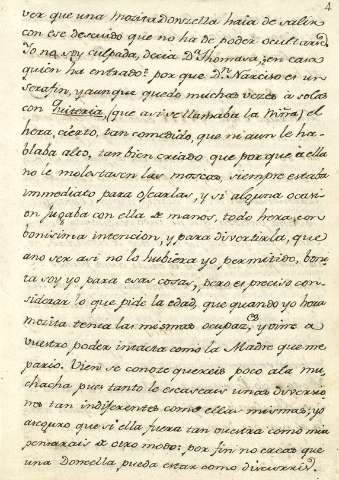 4
ver que una mozita Donzella haia de salir
con ese descuido que no ha de poder ocultarse?
Yo no soy culpada, decia Dª Thomasa; en casa
quien ha entrado? por que Dn Narciso es un
serafin, y aunque quedo muchas vezes à solas
con Quiteria, (que asi se llamaba la Niña) el
hera, cierto, tan comedido, que ni aun le ha-
blaba alto, tan bien criado que por que à ella
no le molestasen las moscas, siempre estaba
immediato para oscarlas, y si alguna ocasi-
on jugaba con ella de manos, todo hera con
bonisima intencion, y para divertirla, que
a no ser asi no lo hubiera yo permitido, boni-
ta soy yo para esas cosas, pero es preciso con-
siderar lo que pide la edad, que quando yo hera
mozita tenia las mismas ocupaz.es y vine a
vuestro poder intacta como la Madre que me
pario. Vien se conoze quereis poco a la mu-
chacha pues tanto le escaseais unas diversio-
nes tan indiferentes como ellas mismas; yo
aseguro que si ella fuera tan vuestra como mia
pensarais de otro modo: por fin no creais que
una Donzella pueda estar como discurris.